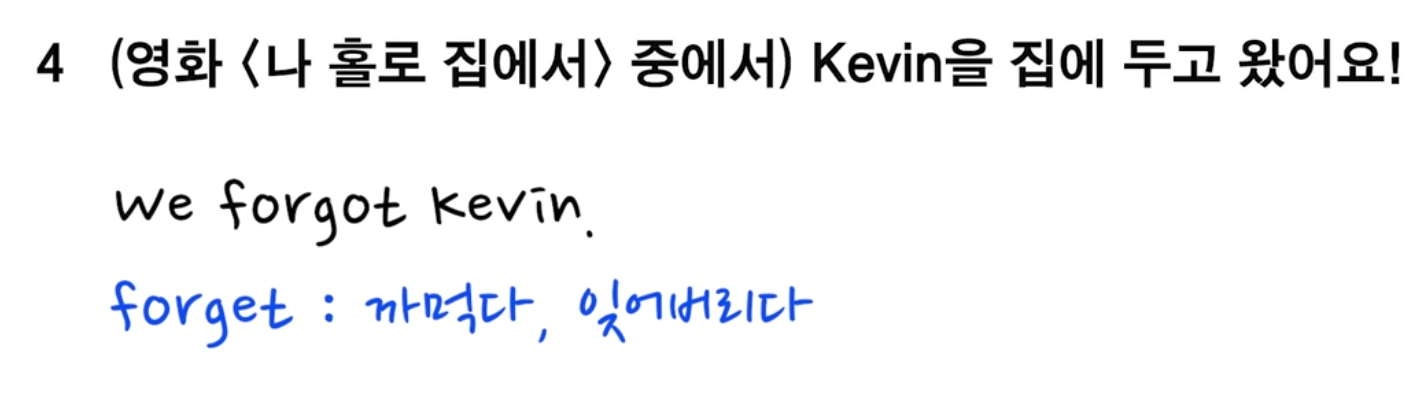 4 (영화 〈나 홀로 집에서〉 중에서) Kevin을 집에 두고 왔어요!
We forgot Kevin.
forget : 까먹다, 잊어버리다